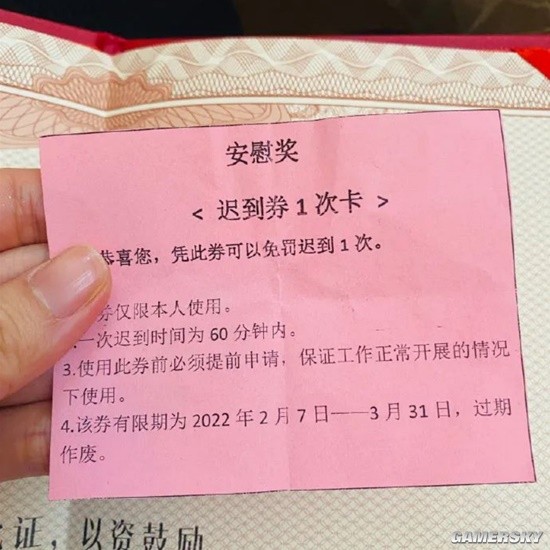 安慰奖
< 迟到券 1 次卡 >
恭喜您，凭此券可以免罚迟到 1 次。
券仅限本人使用。
一次迟到时间为 60 分钟内。
3.使用此券前必须提前申请，保证工作正常开展的情况
下使用。
4.该券有限期为 2022 年 2 月 7 日——3 月 31 日，过期
作废。
证，以资鼓励
GAMERSKY